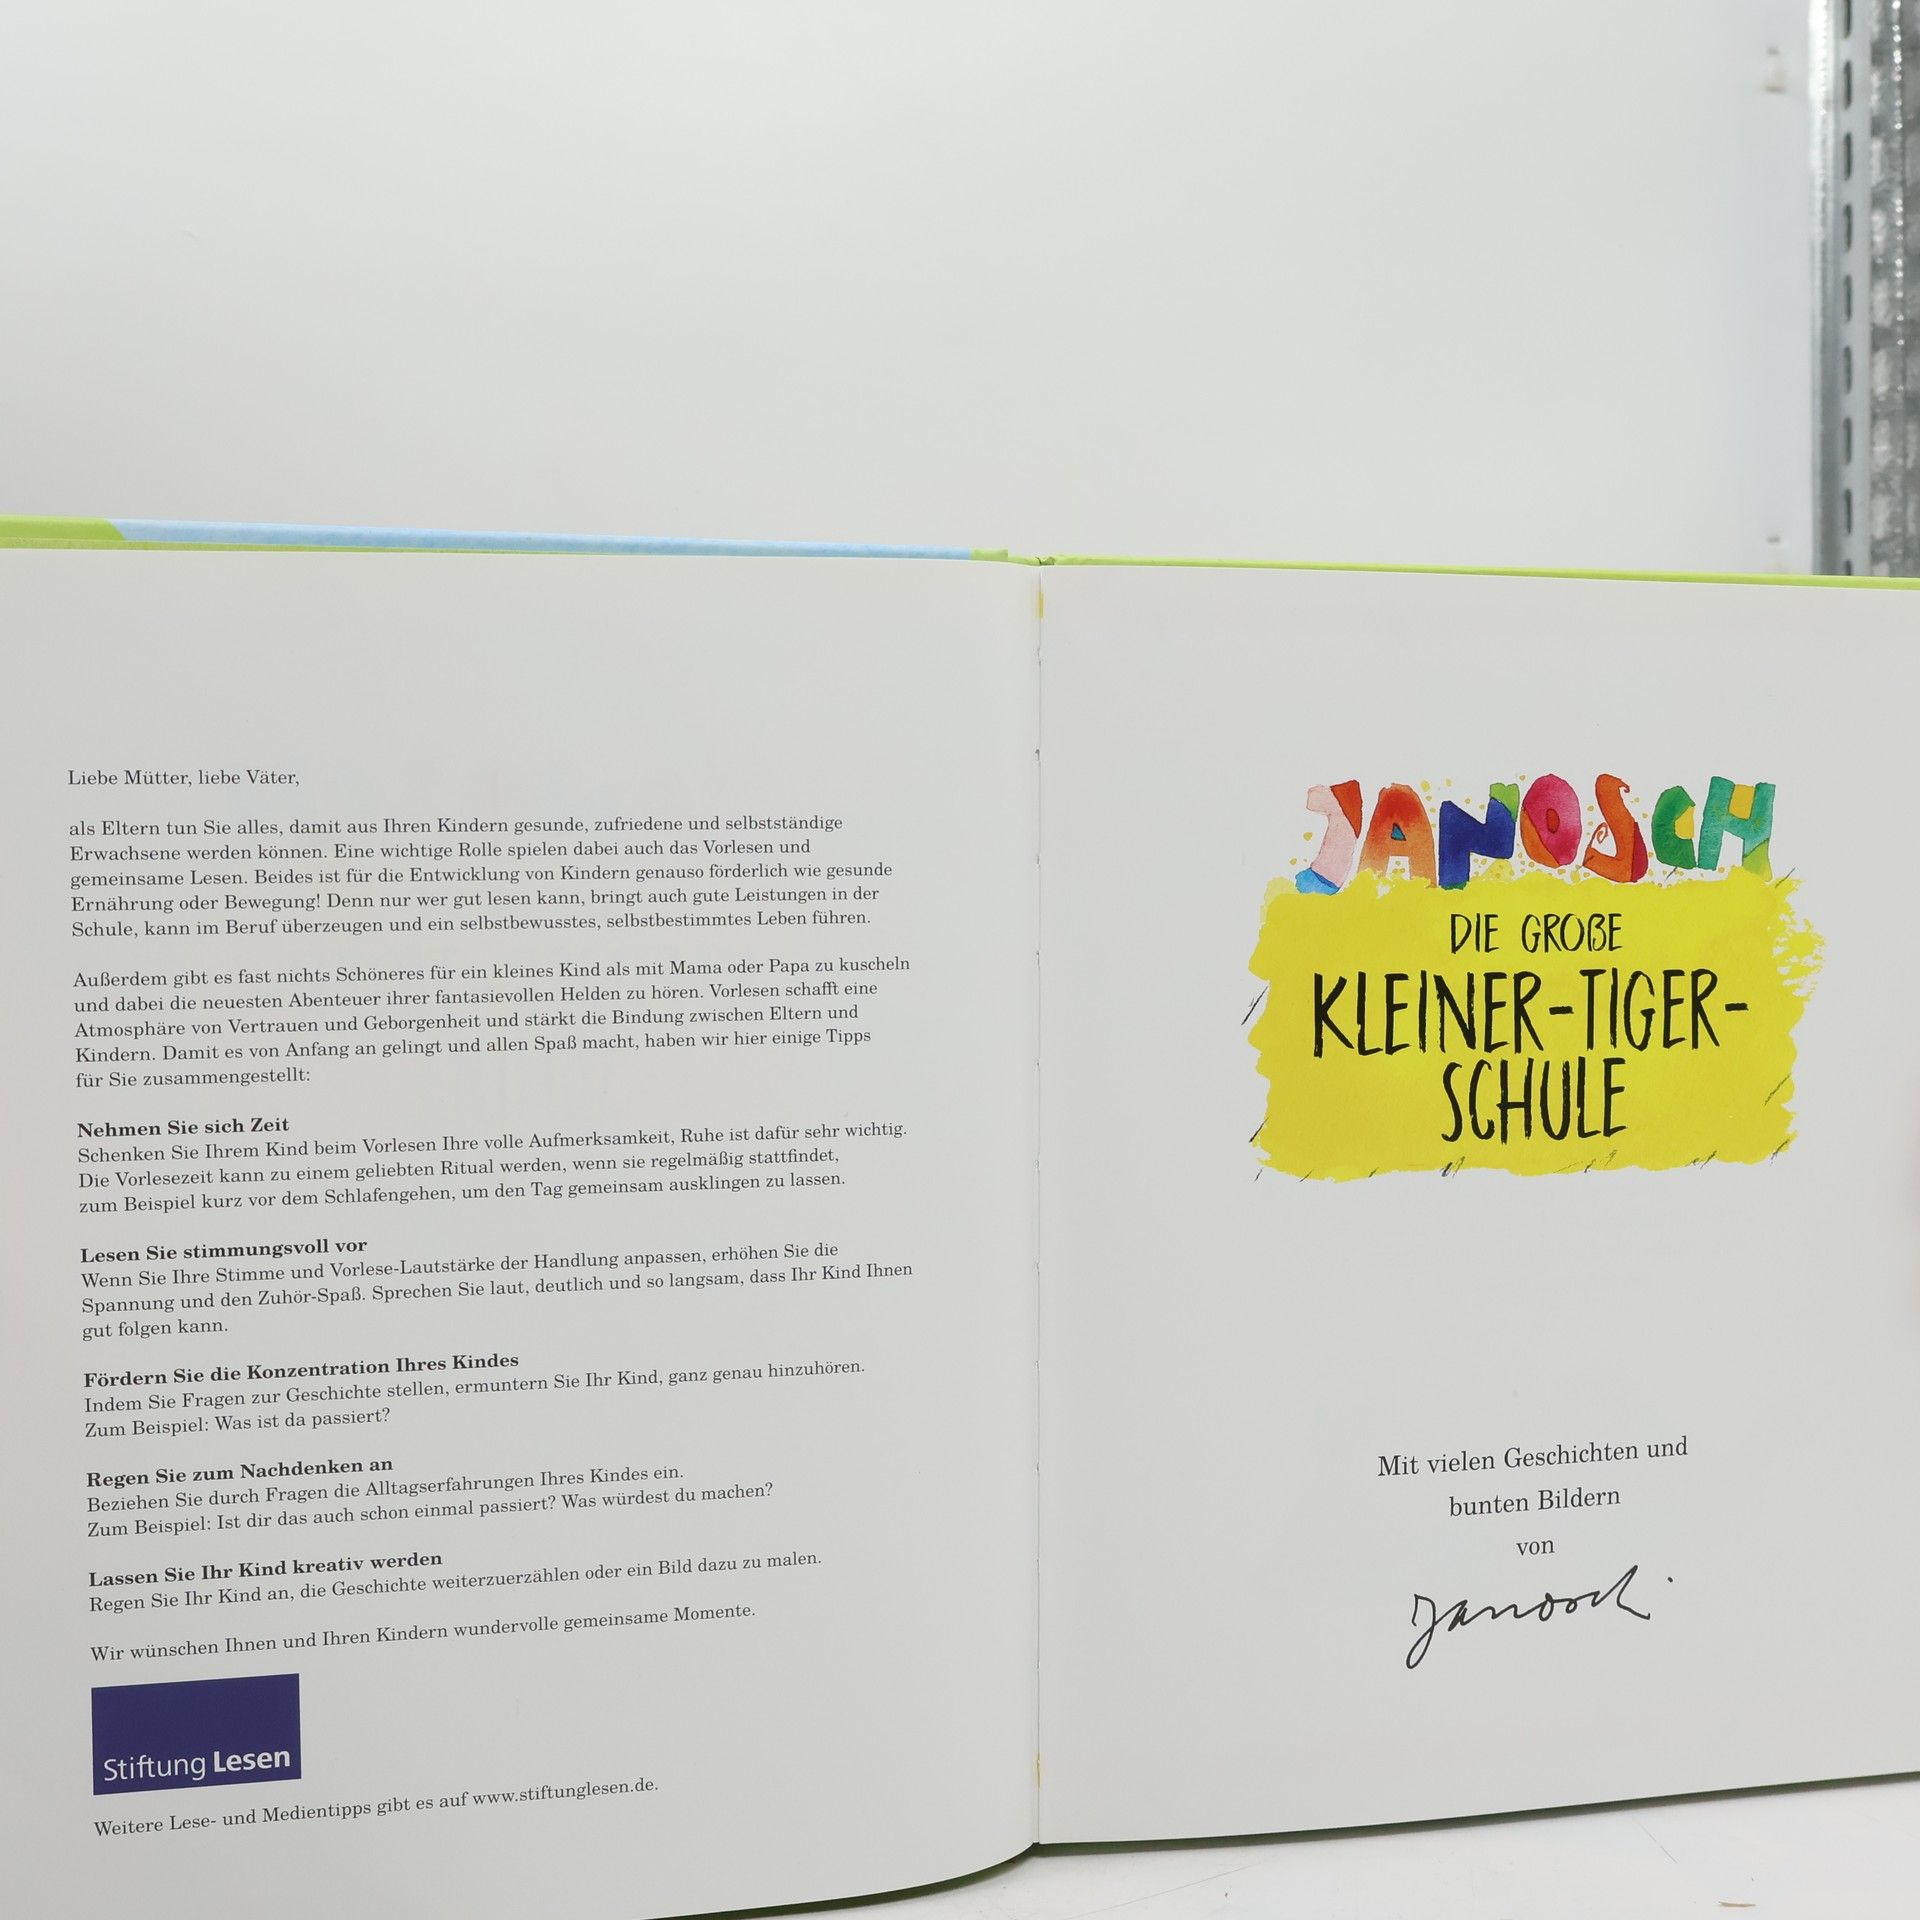 Liebe Mütter, liebe Väter,
als Eltern tun Sie alles, damit aus Ihren Kindern gesunde, zufriedene und selbstständige
Erwachsene werden können. Eine wichtige Rolle spielen dabei auch das Vorlesen und
gemeinsame Lesen. Beides ist für die Entwicklung von Kindern genauso förderlich wie gesunde
Ernährung oder Bewegung! Denn nur wer gut lesen kann, bringt auch gute Leistungen in der
Schule, kann im Beruf überzeugen und ein selbstbewusstes, selbstbestimmtes Leben führen.
Außerdem gibt es fast nichts Schöneres für ein kleines Kind als mit Mama oder Papa zu kuscheln
und dabei die neuesten Abenteuer ihrer fantasievollen Helden zu hören. Vorlesen schafft eine
Atmosphäre von Vertrauen und Geborgenheit und stärkt die Bindung zwischen Eltern und
Kindern. Damit es von Anfang an gelingt und allen Spaß macht, haben wir hier einige Tipps
für Sie zusammengestellt:
Nehmen Sie sich Zeit
Schenken Sie Ihrem Kind beim Vorlesen Ihre volle Aufmerksamkeit, Ruhe ist dafür sehr wichtig.
Die Vorlesezeit kann zu einem geliebten Ritual werden, wenn sie regelmäßig stattfindet,
zum Beispiel kurz vor dem Schlafengehen, um den Tag gemeinsam ausklingen zu lassen.
Lesen Sie stimmungsvoll vor
Wenn Sie Ihre Stimme und Vorlese-Lautstärke der Handlung anpassen, erhöhen Sie die
Spannung und den Zuhör-Spaß. Sprechen Sie laut, deutlich und so langsam, dass Ihr Kind Ihnen
gut folgen kann.
Fördern Sie die Konzentration Ihres Kindes
Indem Sie Fragen zur Geschichte stellen, ermuntern Sie Ihr Kind, ganz genau hinzuhören.
Zum Beispiel: Was ist da passiert?
Regen Sie zum Nachdenken an
Beziehen Sie durch Fragen die Alltagserfahrungen Ihres Kindes ein.
Zum Beispiel: Ist dir das auch schon einmal passiert? Was würdest du machen?
Lassen Sie Ihr Kind kreativ werden
Regen Sie Ihr Kind an, die Geschichte weiterzuerzählen oder ein Bild dazu zu malen.
Wir wünschen Ihnen und Ihren Kindern wundervolle gemeinsame Momente.
Stiftung Lesen
Weitere Lese- und Medientipps gibt es auf www.stiftunglesen.de.
JANOSCH
DIE GROßE
KLEINER-TIGER-
SCHULE
Mit vielen Geschichten und
bunten Bildern
von
Janosch